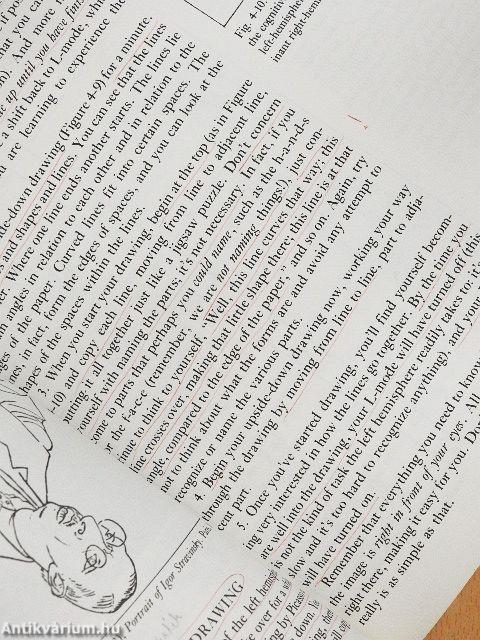 Fig. 4-10.
the cogniti
left-hemisphe
inant right-hem
that you ca
n). And more
e up until you have
a shift back to L-mode, wh
u are learning to experience the
de-down drawing (Figure 4-9) for a minute.
and shapes and lines. You can see that the lines
er. Where one line ends another starts. The lines lie
n angles in relation to each other and in relation to the
ges of the paper. Curved lines fit into certain spaces. The
nes, in fact, form the edges of spaces, and you can look at the
hapes of the spaces within the lines.
3. When you start your drawing, begin at the top (as in Figure
10) and copy each line, moving from line to adjacent line,
putting it all together just like a jigsaw puzzle. Don't concern
yourself with naming the parts; it's not necessary. In fact, if you
come to parts that perhaps you could name, such as the h-a-n-d-s
or the f-a-c-e (remember, we are not naming things!), just con-
tinue to think to yourself, "Well, this line curves that way; this
line crosses over, making that little shape there; this line is at that
angle, compared to the edge of the paper," and so on. Again, try
not to think about what the forms are and avoid any attempt to
recognize or name the various parts.
4. Begin your upside-down drawing now, working your way
through the drawing by moving from line to line, part to adja-
cent part.
5. Once you've started drawing, you'll find yourself becom-
ing very interested in how the lines go together. By the time you
are well into the drawing, your L-mode will have turned off (this
is not the kind of task the left hemisphere readily takes to: it's
slow and it's too hard to recognize anything), and your
will have turned on.
Remember that everything you need to know
the image is right in front of your eyes. All
right there, making it easy for you. Don
really is as simple as that.
Portrait of Igor Stravinsky
DRAWING
of the left
e over for a
ng by Picasso
down.
Antikvárium.hu